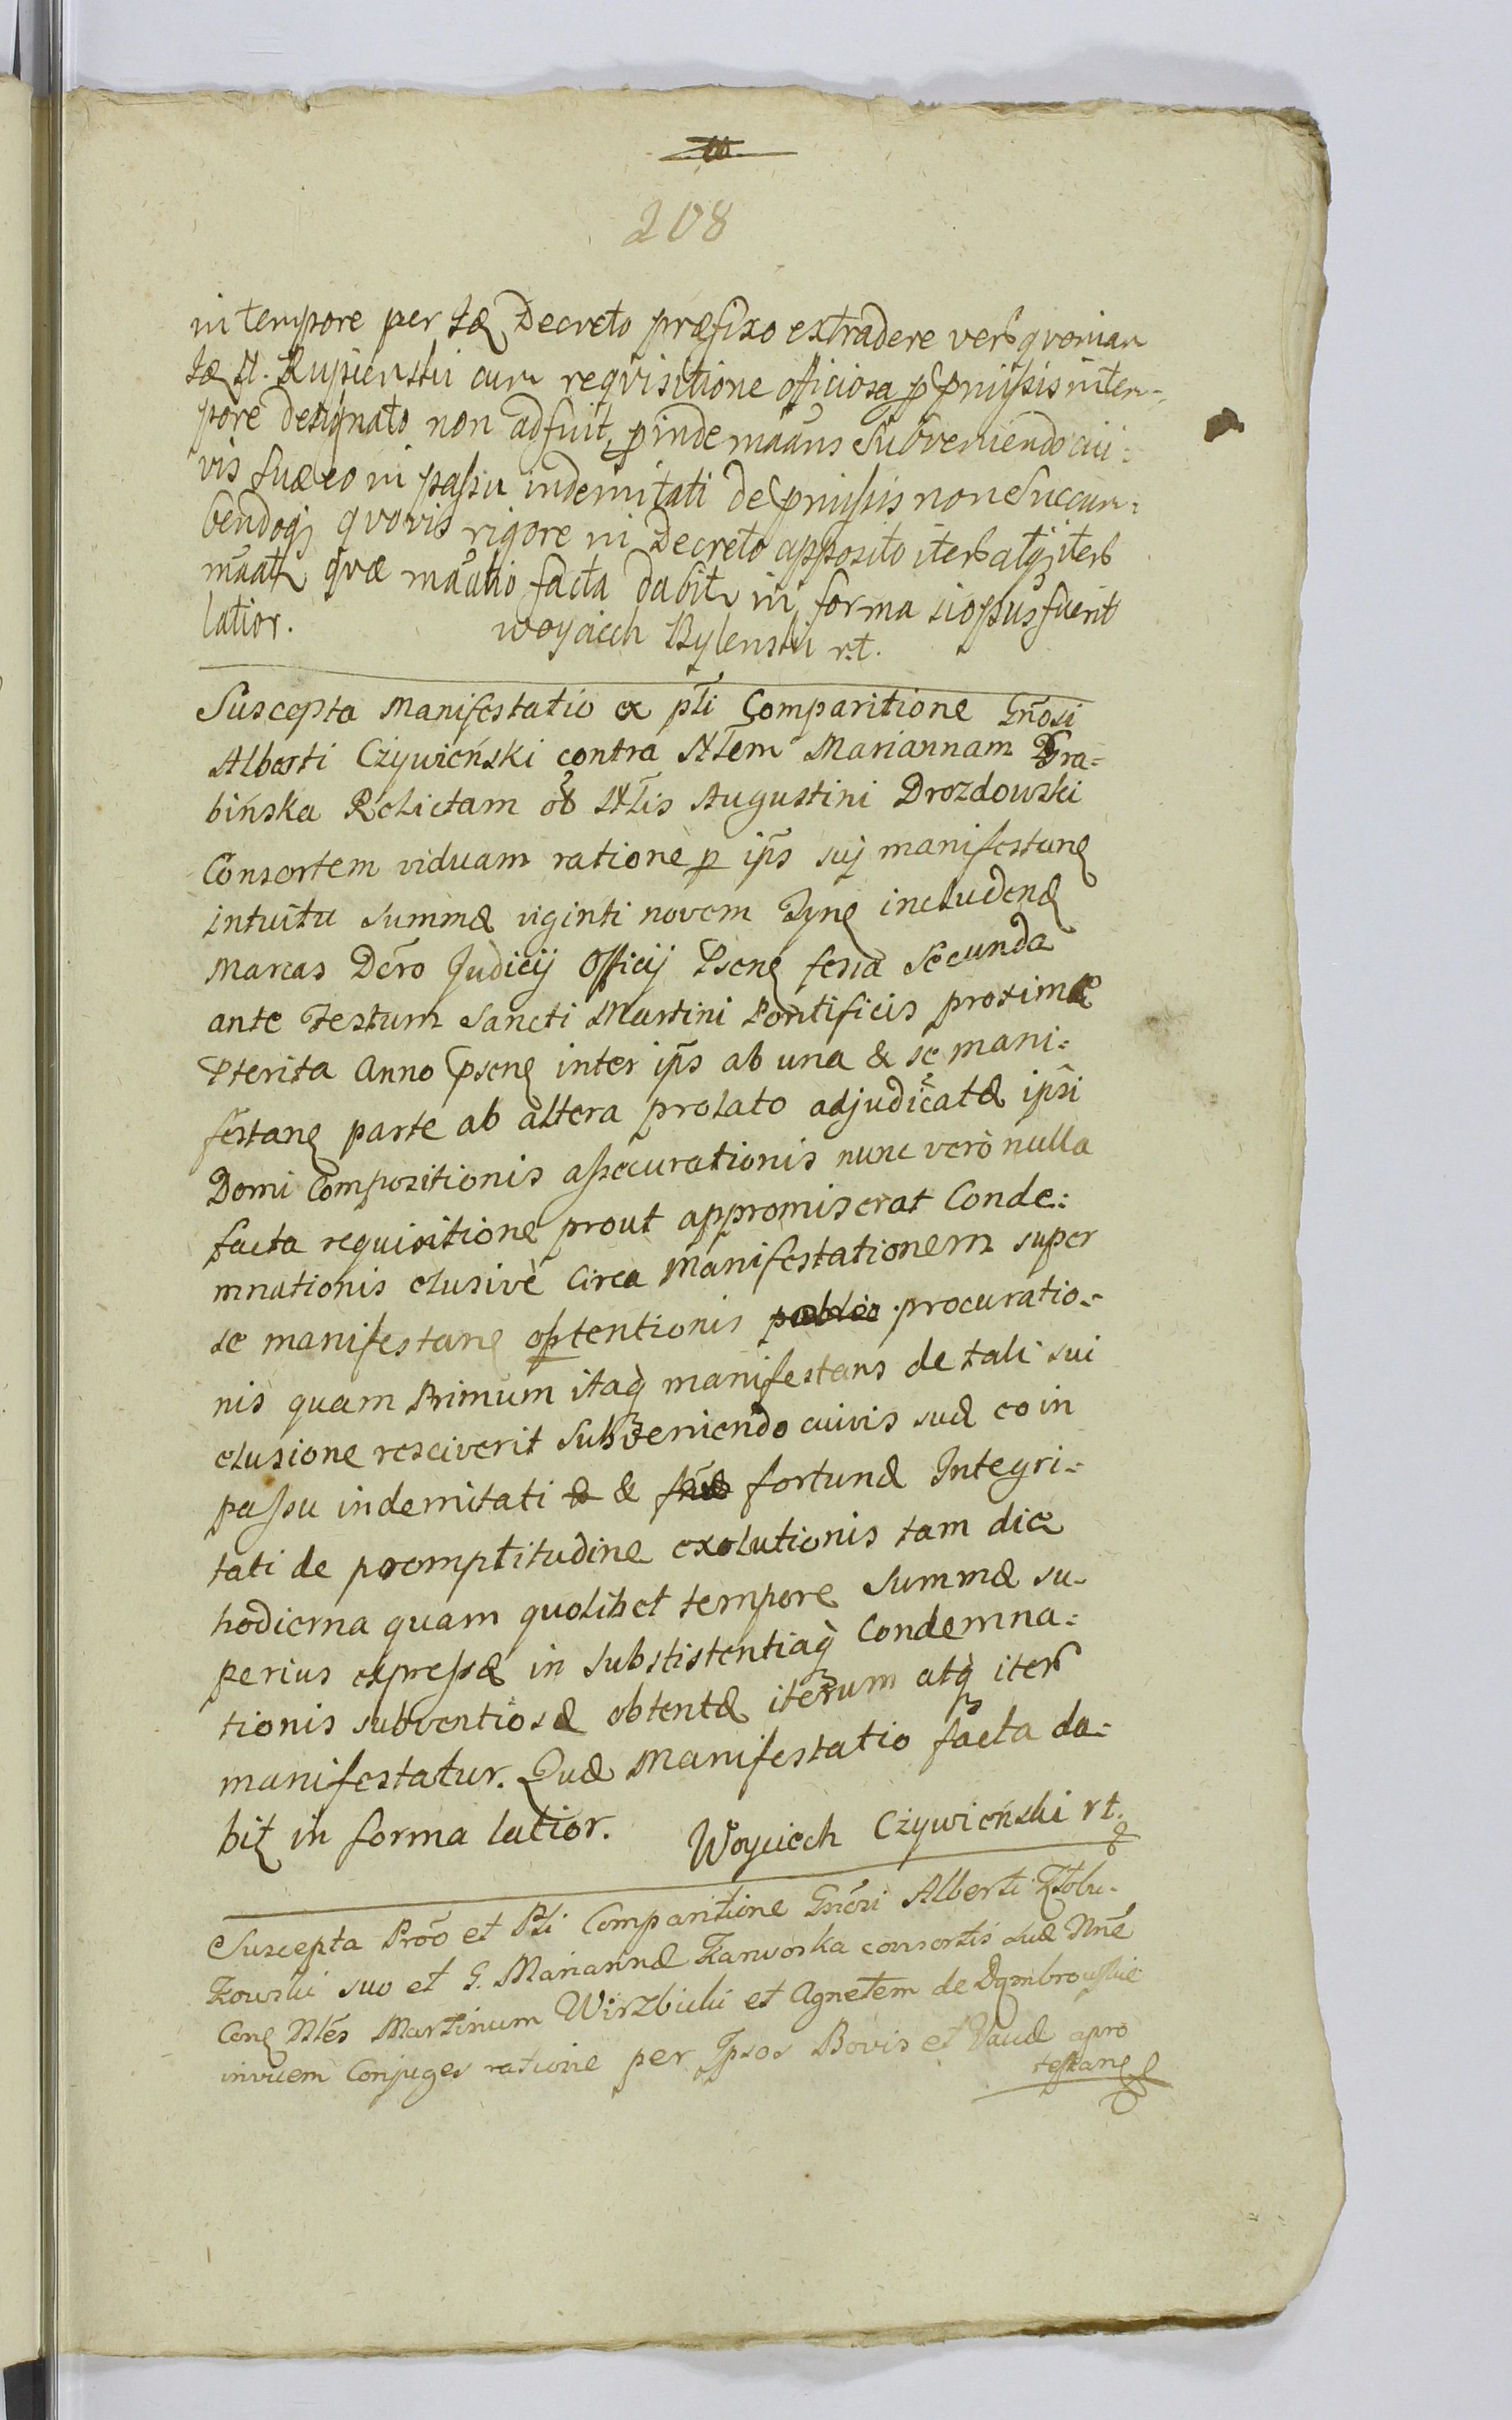 208
in tempore per Iæ Decreto præfixo extradere vero quoniam
Iæ N. Rupienski cum requisitione officiosa p pmissis in tem-
pore designato non adfuit, pinde maans Subveniendo cui-
vis suæ eo in passu indemnitati de pmissis non Succum-
bendoq quovis rigore in Decreto apposito iterb atq iterb
maatr quæ maatio facta dabitr in forma si opus fuerit
latior. Woyciech Rylenski r.t.
Suscepta Manifestatio ex pli Comparitione Gnosi
Alberti Czywieński contra Nlem Mariannam Gra-
bińska Relictam oł Nlis Augustini Drozdowski
Consortem viduam ratione p ips suj manifestane
intuitu summæ viginti novem Tyne includenæ
Marcas Dcro Judicij Officij Psene feria Secunda
ante Festum Sancti Martini Pontificis proximæ
Pterita Anno psene inter ips ab una & se mani-
festane parte ab altera prolato adjudicatæ ipsi
Domi Compositionis assecurationis nunc verò nulla
facta requisitione prout appromiserat Conde-
mnationis elusivè Circa Manifestationem super
se manifestane optentionis procuratio-
nis quam Primum itaq manifestans de tali sui
elusione resciverit Subveniendo cuivis suæ eo in
passu indemnitati & fortunæ Integri-
tati de promptitudine exolutionis tam die
hodierna quam quolibet tempore Summæ su-
perius expressæ in substistentiaq Condemna-
tionis subventiosæ obtentæ iterum atq iter
manifestatur. Quæ Manifestatio facta da-
bit in forma latior. Woyciech Czywieński rt.
Suscepta Pro et Pli Comparitione Gnosi Alberti Żłobi-
kowski suo et G. Mariannæ Karwoska consortis suæ Nne
Cone Nles Martinum Wirzbicki et Agnetem de Dąmbrowskie
invicem Conjuges ratione per Ipsos Bovis et Vaccæ apro
testane